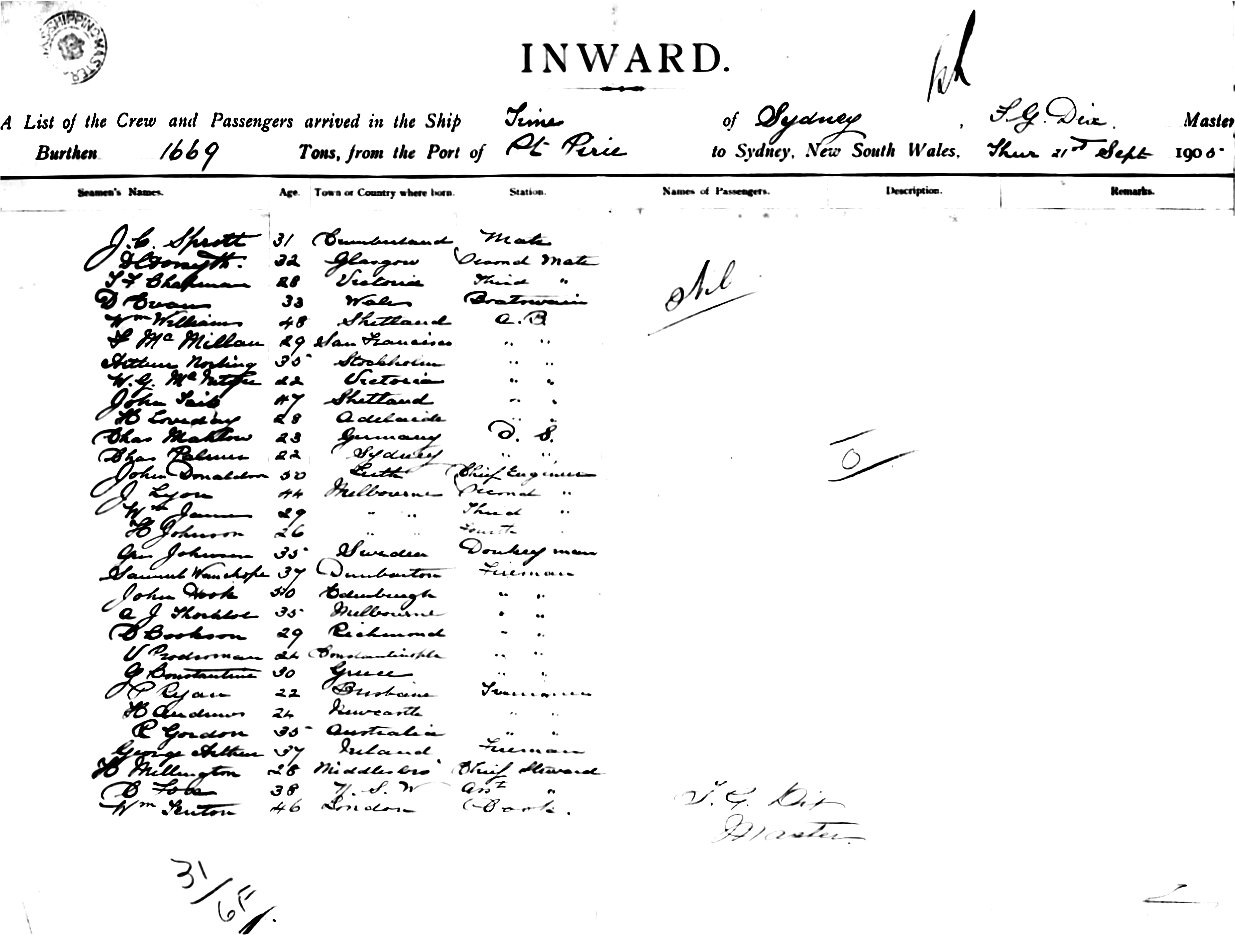 SHIPPING MASTER
INWARD.
A List of the Crew and Passengers arrived in the Ship Time of Sydney, T. G. Dix Master
Burthen 1669 Tons, from the Port of Pt Pirie to Sydney, New South Wales, Thur 21st Sept 1905
Seamen's Names. Age. Town or Country where born. Station. Names of Passengers. Description. Remarks.
J. C. Sprott 31 Cumberland Mate
D Forsyth. 32 Glasgow Second Mate
T F Chapman 28 Victoria Third "
Nil
D Evans 33 Wales Boatswain
Wm Williams 48 Shetland A. B
McMillan 29 San Francisco " "
Arthur Norling 35 Stockholm " "
W. G. 22 Victoria " "
John Tait 47 Shetland " "
H Loveday 28 Adelaide " "
Chas Mahlow 23 Germany O. S.
Chas Palmer 22 Sydney " "
0
John Donaldson 50 Leith Chief Engineer
J Lyon 44 Melbourne Second "
Wm 29 " " Third "
H Johnson 26 " " Fourth "
Geo Johnson 35 Sweden Donkeyman
Samuel Wauchope 37 Dumbarton Fireman
John Hook 50 Edinburgh " "
A J 35 Melbourne " "
D Bookson 29 Richmond " "
V Prodroman 24 Constantinople " "
G Constantine 30 Greece " "
P Ryan 22 Brisbane Trimmer
H Andrews 24 Newcastle " "
R Gordon 35 Australia " "
George Arthur 37 Ireland Fireman
H Millington 28 Middlesbro' Chief Steward
38 N. S. W Asst "
Wm Fenton 46 London Cook.
T. G. Dix
Master.
31/